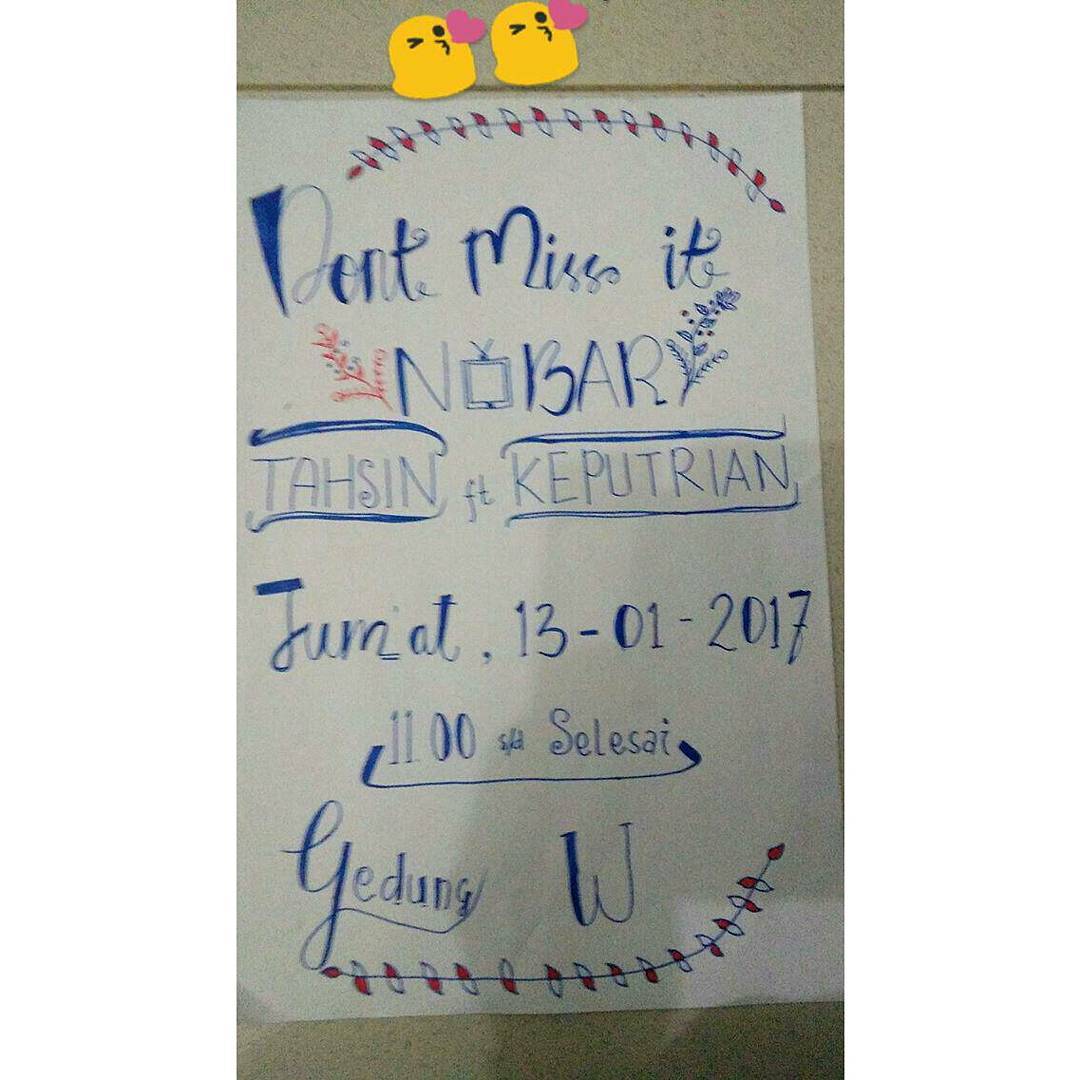 Dont Miss it
NOBAR
TAHSIN ft KEPUTRIAN
Jum'at, 13-01-2017
11 00 s/d Selesai
Gedung W